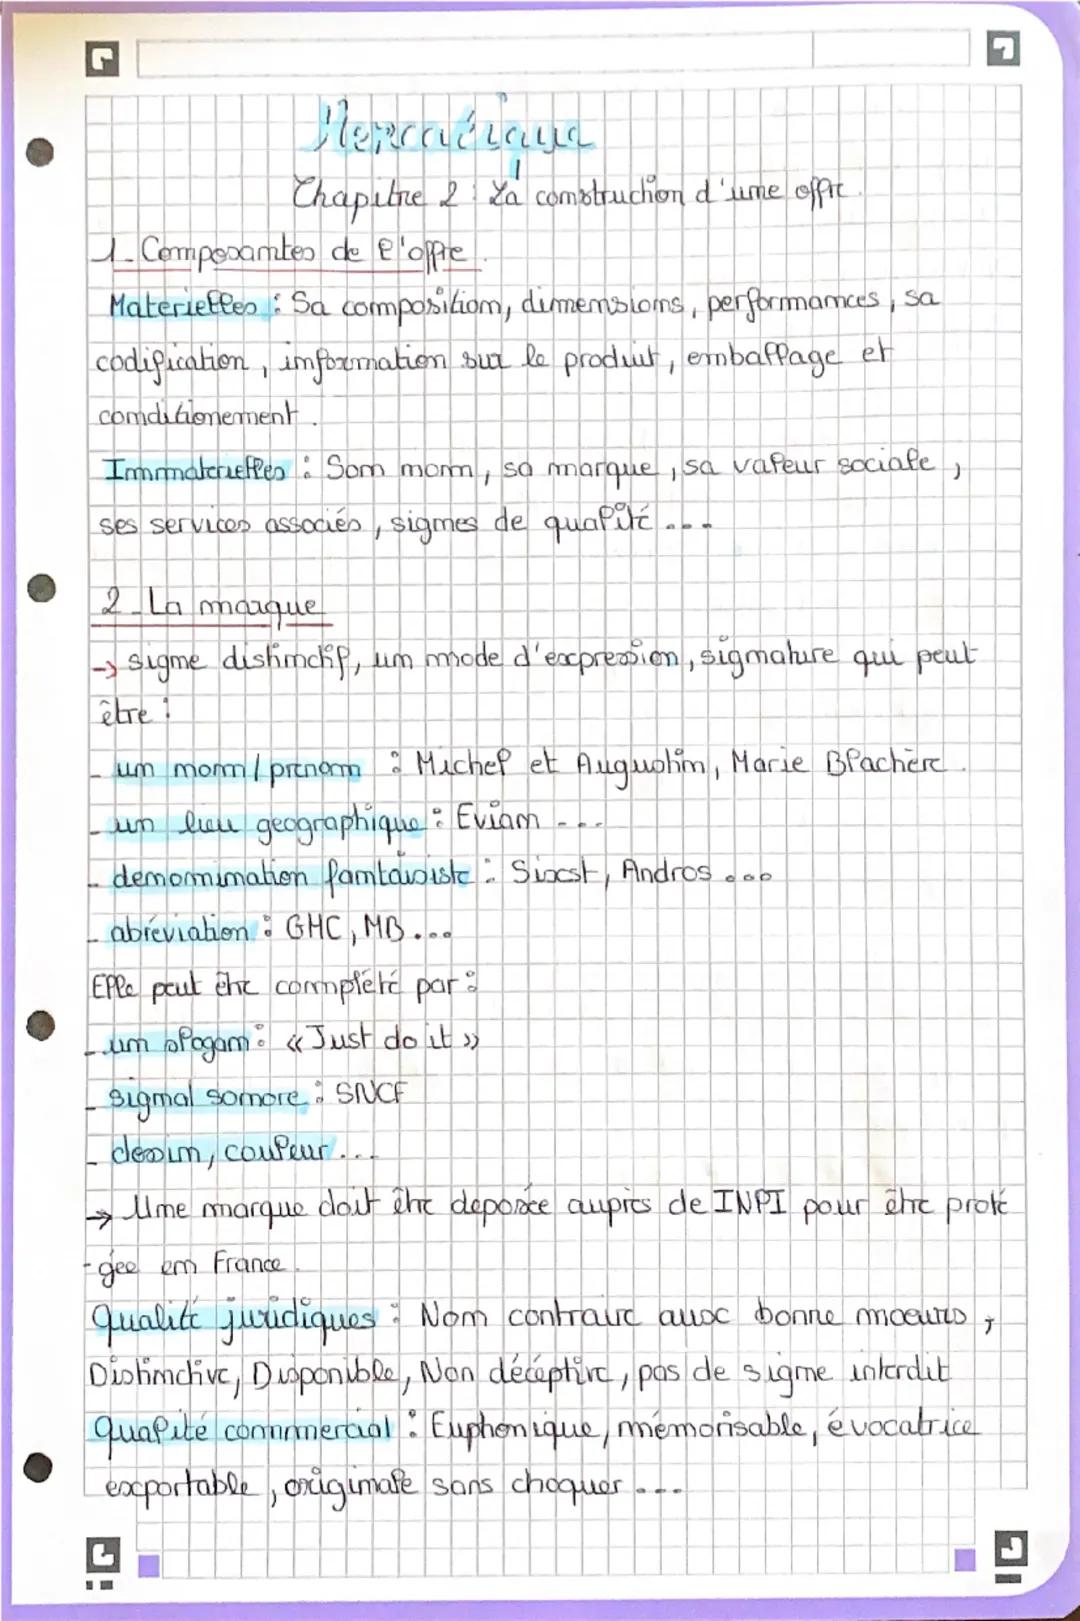 Mercatique
Chapitre 2 : La construction d'une offre.
1_Composantes de l'offre.
Materielles : Sa composition, dimensions, performances, sa
codification, information sur le produit, emballage et
conditionement.
Immaterielles : Son nom, sa marque, sa valeur sociale,
ses services associés, signes de qualité ...
2_La marque
→ signe distinctif, un mode d'expression, signature qui peut
être :
_ un nom / prenom : Michel et Augustin, Marie Blachère.
_ un lieu geographique : Evian ...
_ denomination fantaisiste : Sixst, Andros ...
_ abréviation : GMC, MB ...
Elle peut être complété par :
_ un slogan : « Just do it »
_ signal sonore : SNCF
_ dessin, couleur ...
→ Une marque doit être deposée auprès de INPI pour être proté
-gee en France.
Qualité juridiques : Non contraire aux bonne moeurs,
Distinctive, Disponible, Non décéptive, pas de signe interdit
Qualité commercial : Euphonique, mémorisable, évocatrice
exportable, originale sans choquer ...